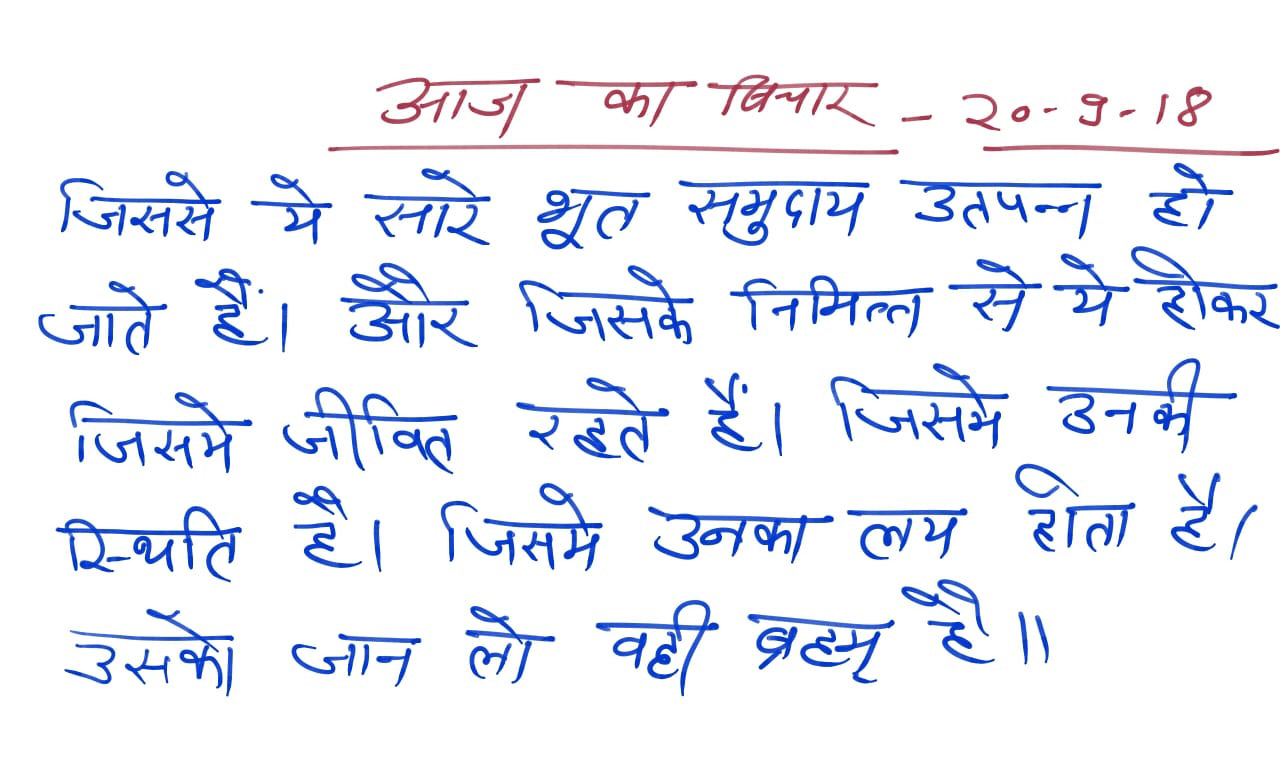 आज का विचार - 20-9-18
जिससे ये सारे भूत समुदाय उतपन्न हो
जाते हैं। और जिसके निमित्त से ये होकर
जिसमे जीवित रहते हैं। जिसमे उनकी
स्थिति है। जिसमे उनका लय होता है।
उसको जान लो वही ब्रहम् है॥